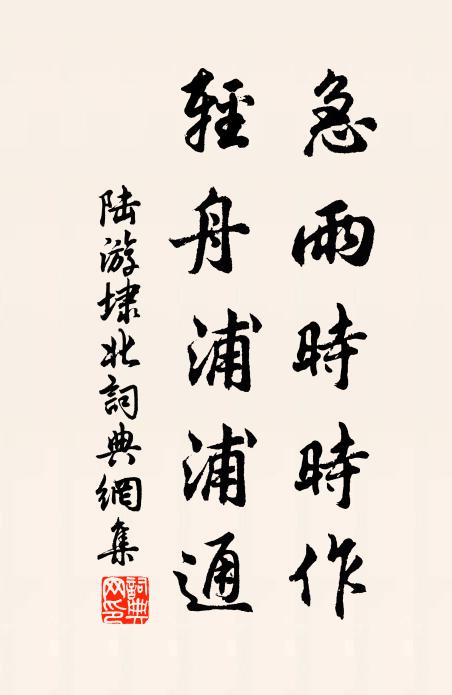 急雨時時作
輕舟浦浦通
陆游埭北詞典網集
詞典网印